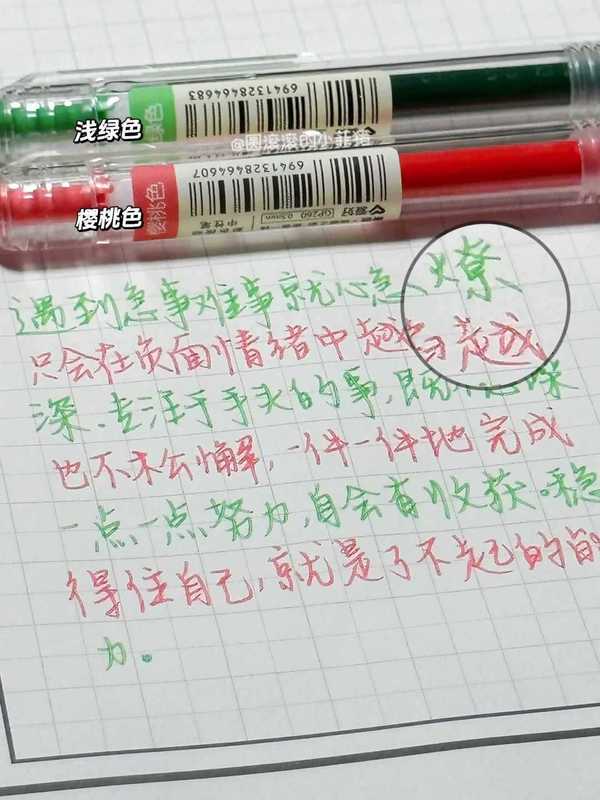 浅绿色
绿色
6941328464683
@圆滚滚的小菲猪
樱桃色
樱桃色
6941328464607
爱好
GP260 0.5mm
中性笔
遇到急事难事就心急火燎
只会在负面情绪中越
深、专注于手头的事,既不躁
也不松懈,一件一件地完成
一点一点努力,自会有收获。稳
得住自己,就是了不起的
力。